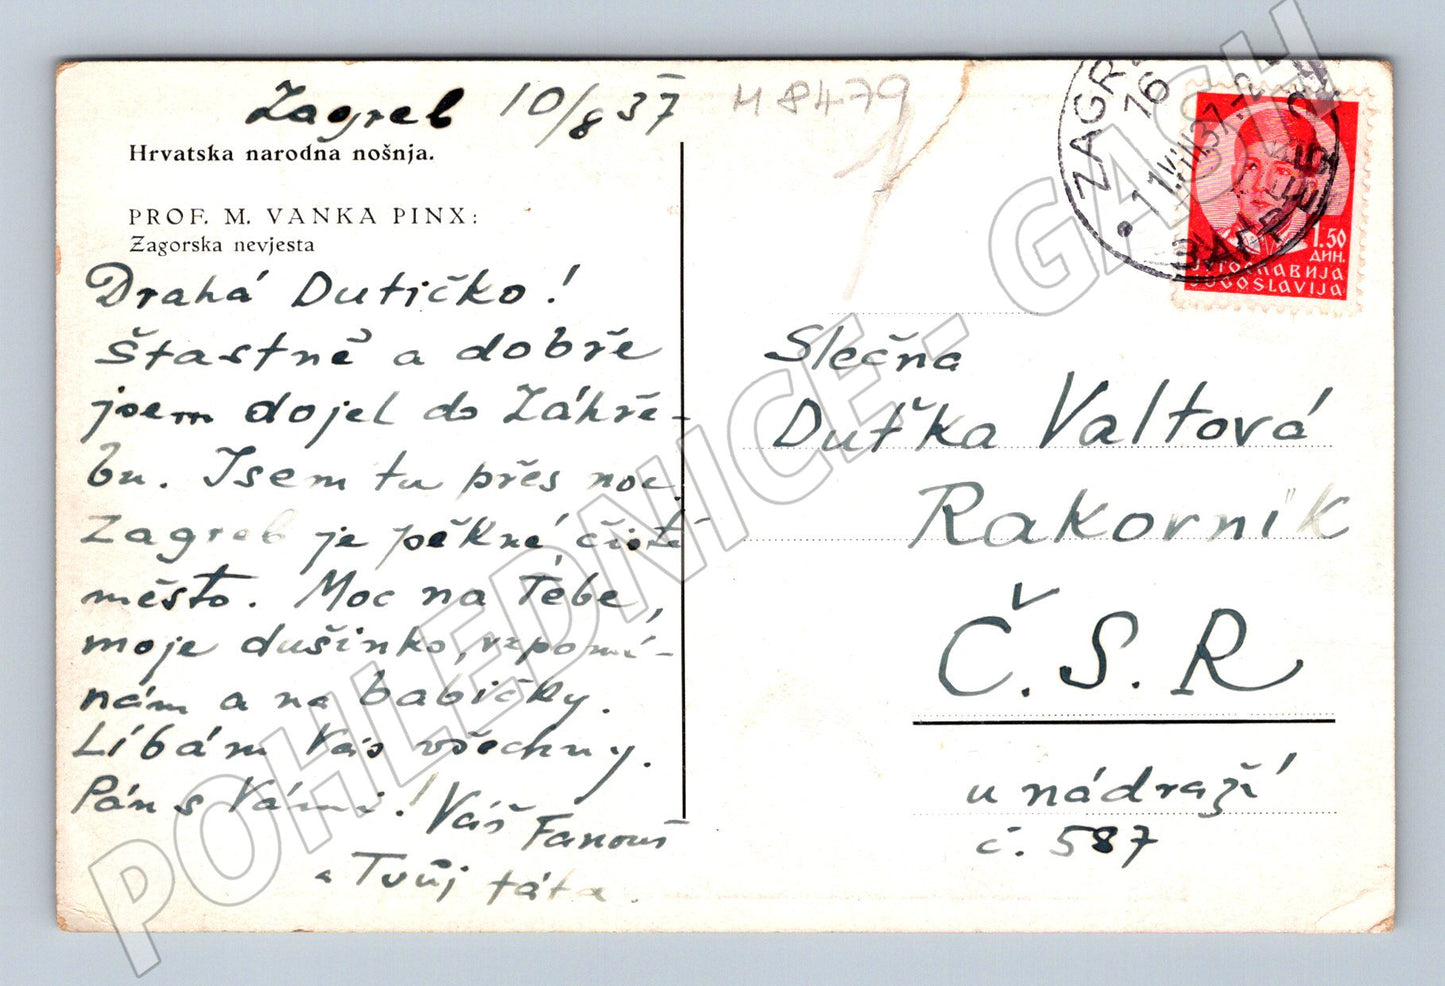 Zagreb 10/8 37
H 8479
Hrvatska narodna nošnja.
PROF. M. VANKA PINX:
Zagorska nevjesta
Drahá Dutičko!
Štastně a dobře
jsem dojel do Záhře-
bu. Jsem tu přes noc.
Zagreb je pěkné, čisté
město. Moc na Tebe,
moje dušinko, vzpomí-
nám a na babičky.
Líbám Vás všechny.
Pán s Vámi! Váš Fanouš
a Tvůj táta.
ZAGREB
16
11.VIII.37.-2
ЗАГРЕБ
1.50
ДИН.
ЈУГОСЛАВИЈА
JUGOSLAVIJA
Slečna
Duťka Valtová
Rakovník
Č.S.R
u nádraží
č. 587
POHLEDNICE - GASH